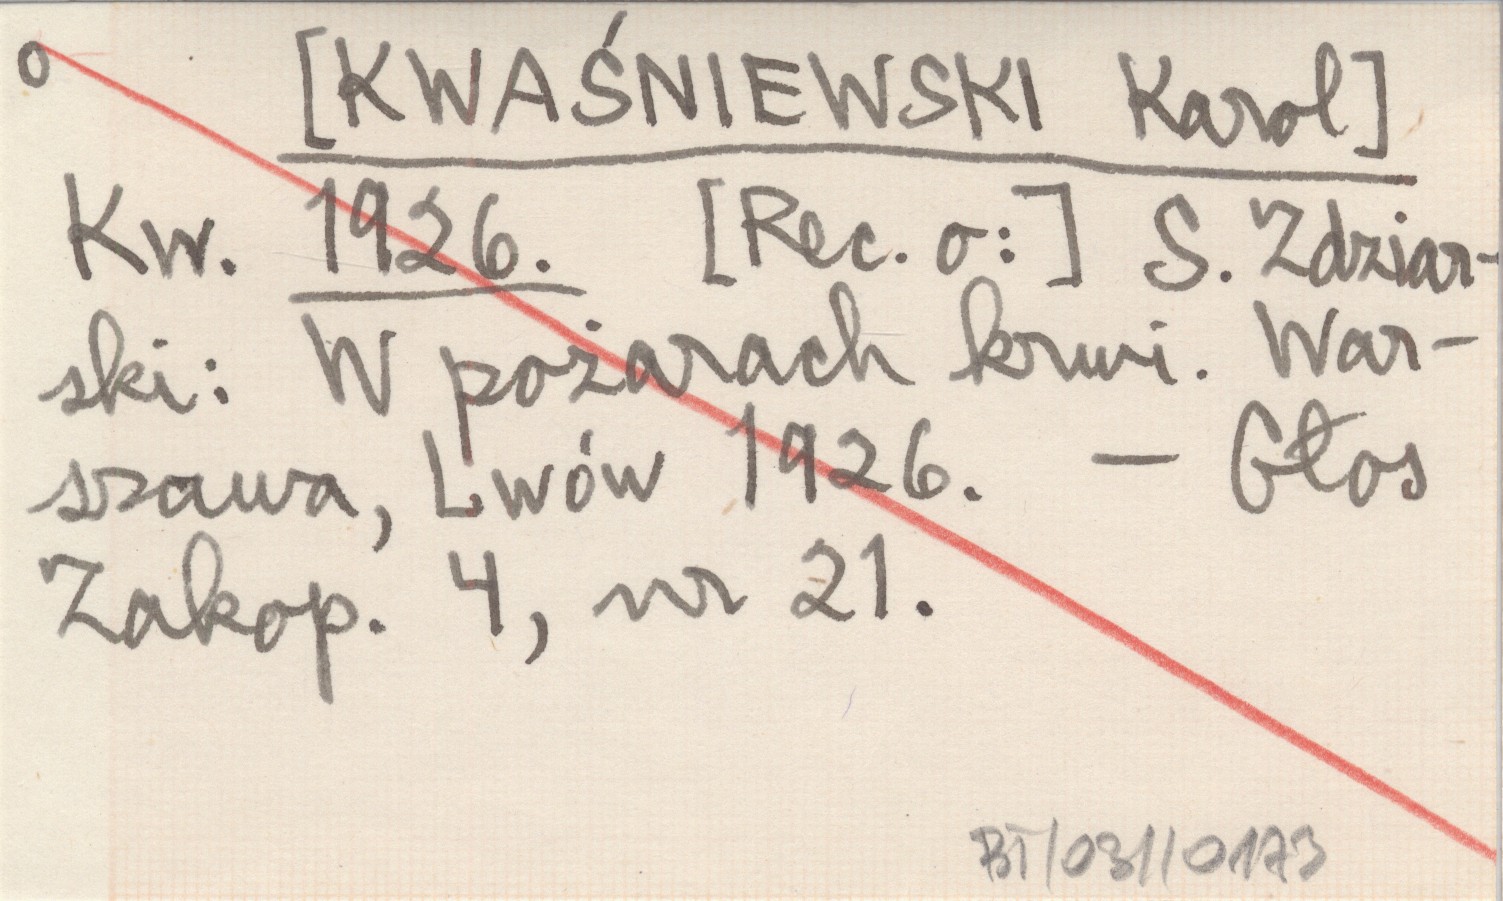 o [KWAŚNIEWSKI Karol]
Kw. 1926. [Rec. o:] S. Zdziar-
ski: W pożarach krwi. War-
szawa, Lwów 1926. — Głos
Zakop. 4, nr 21.
BT/031/0173